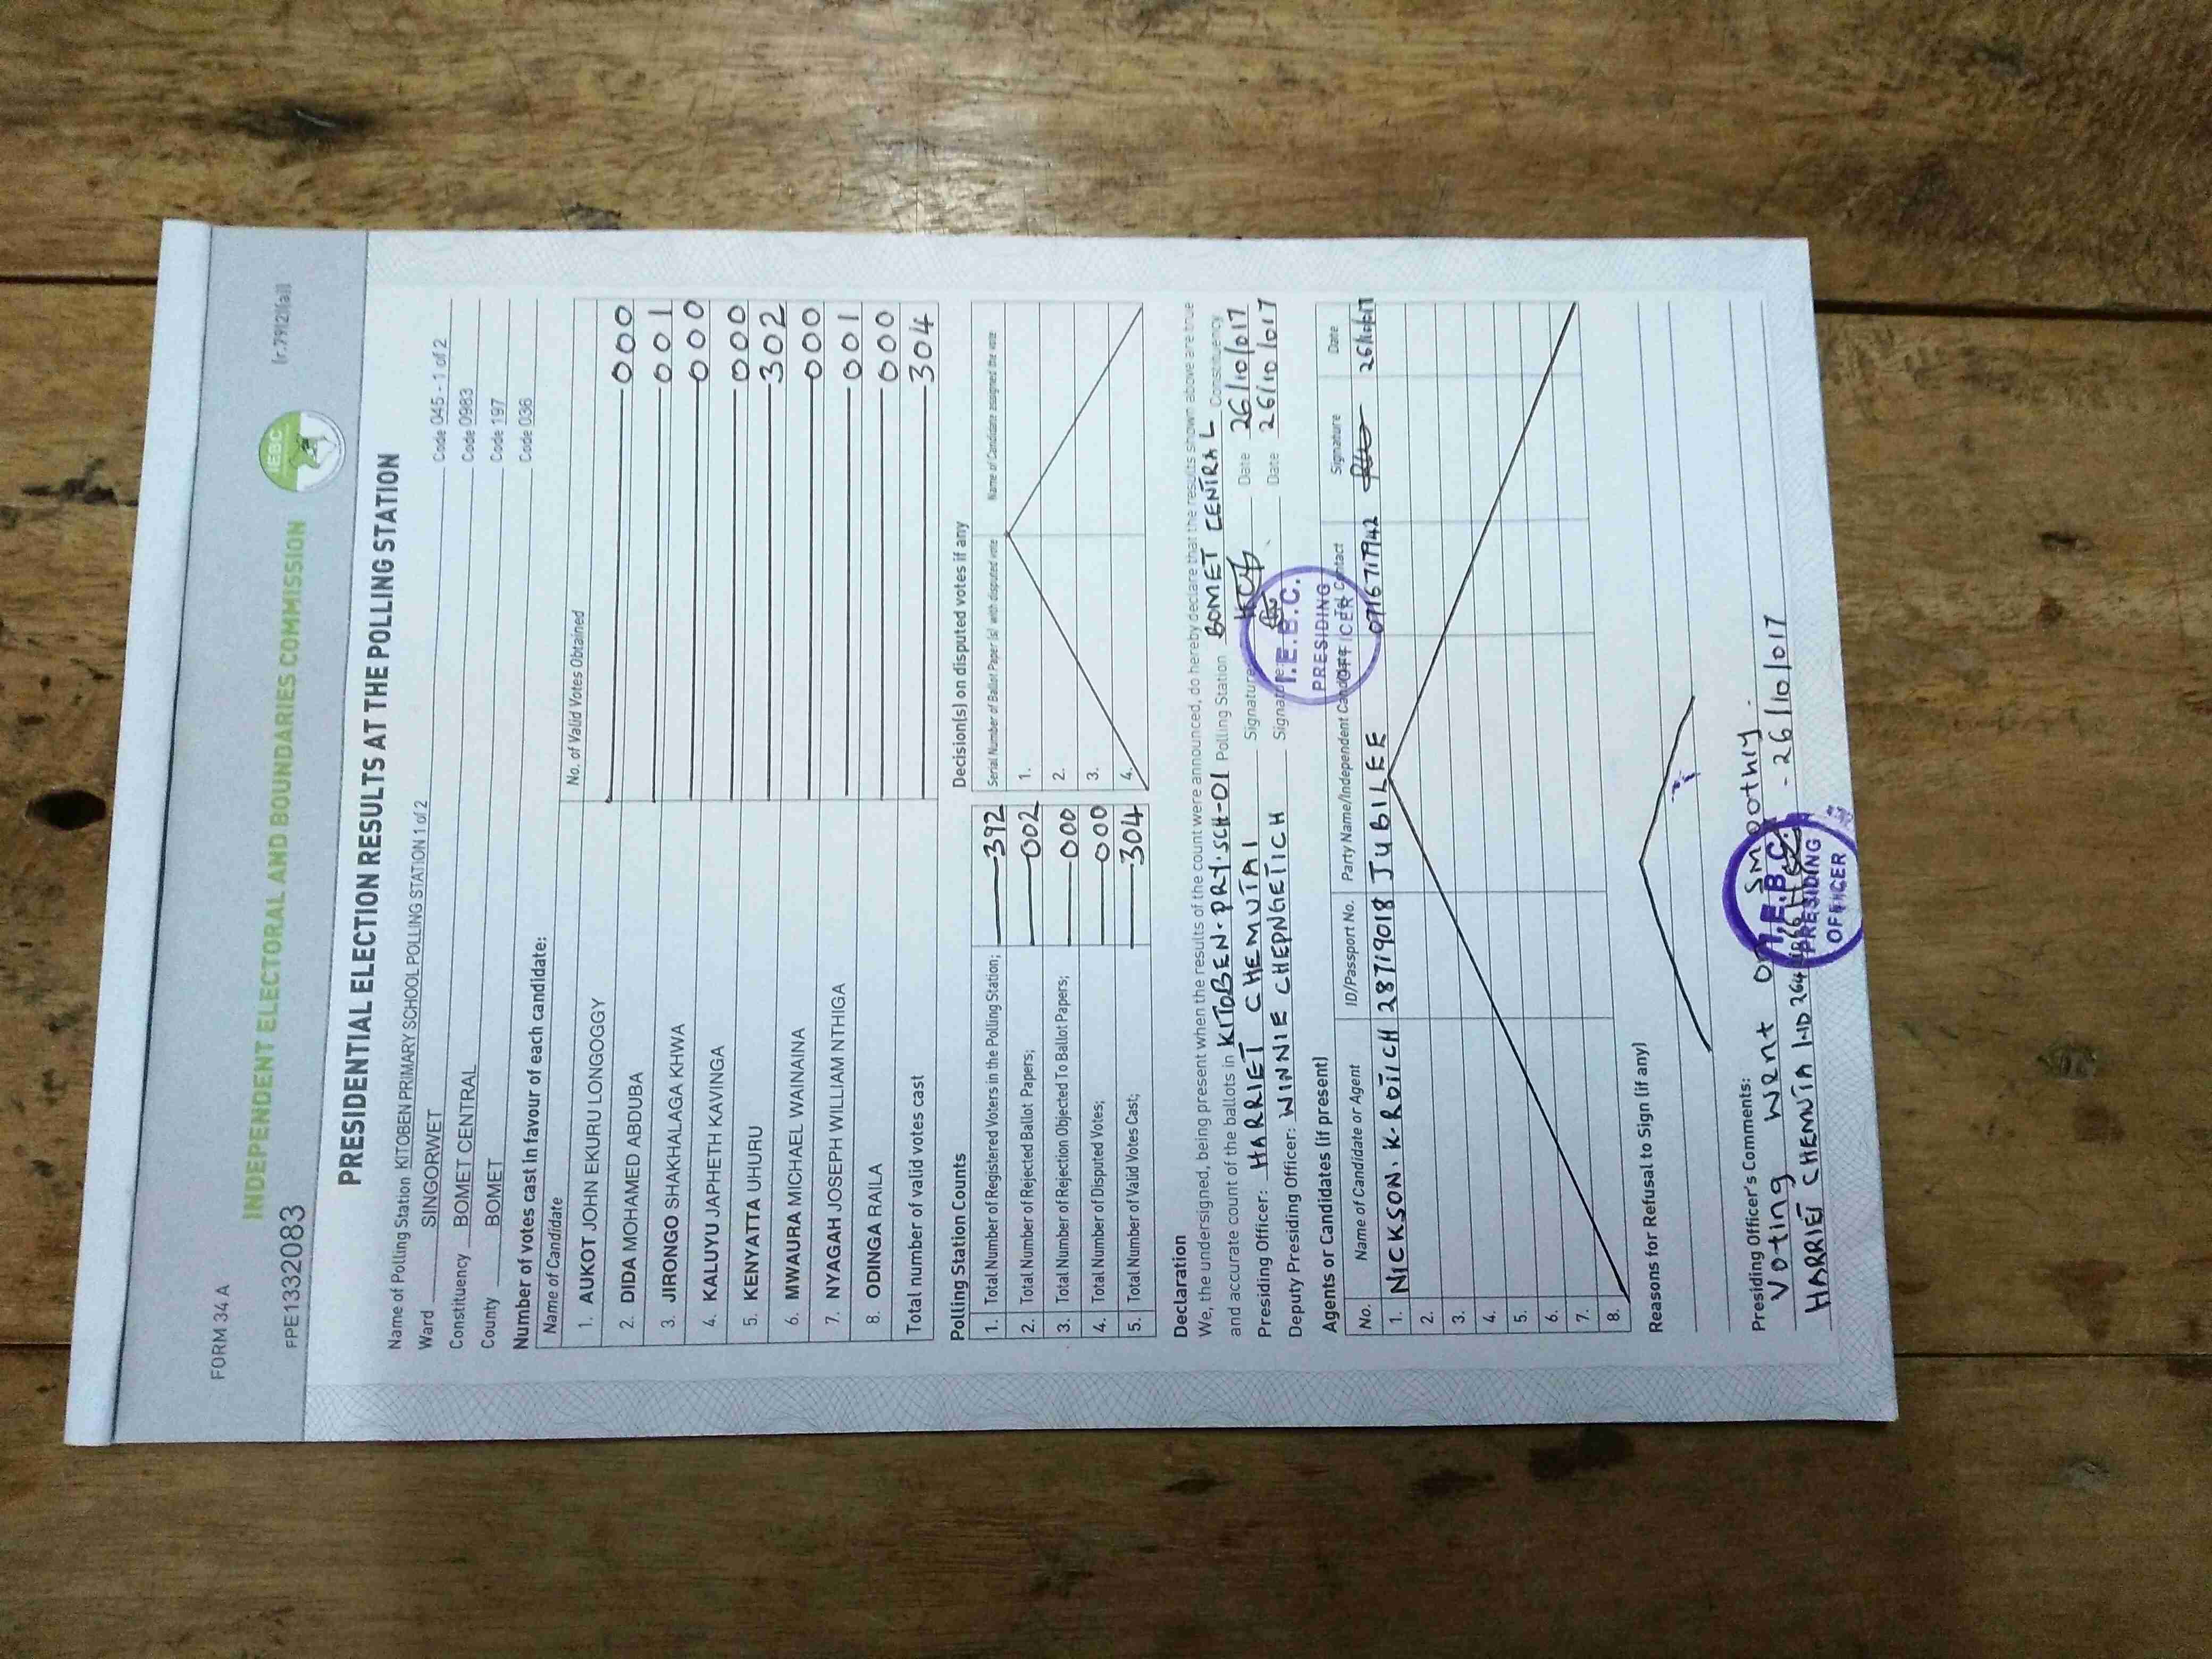 FORM 34 A
INDEPENDENT ELECTORAL AND BOUNDARIES COMMISSION
IEBC
(r.79(2)(a))
FPE1332083
PRESIDENTIAL ELECTION RESULTS AT THE POLLING STATION
Name of Polling Station KITOBEN PRIMARY SCHOOL POLLING STATION 1 of 2 Code 045 - 1 of 2
Ward SINGORWET Code 0983
Constituency BOMET CENTRAL Code 197
County BOMET Code 036
Number of votes cast in favour of each candidate:
Name of Candidate No. of Valid Votes Obtained
1. AUKOT JOHN EKURU LONGOGGY 000
2. DIDA MOHAMED ABDUBA 001
3. JIRONGO SHAKHALAGA KHWA 000
4. KALUYU JAPHETH KAVINGA 000
5. KENYATTA UHURU 302
6. MWAURA MICHAEL WAINAINA 000
7. NYAGAH JOSEPH WILLIAM NTHIGA 001
8. ODINGA RAILA 000
Total number of valid votes cast 304
Polling Station Counts
1. Total Number of Registered Voters in the Polling Station; 392
2. Total Number of Rejected Ballot Papers; 002
3. Total Number of Rejection Objected To Ballot Papers; 000
4. Total Number of Disputed Votes; 000
5. Total Number of Valid Votes Cast; 304
Decision(s) on disputed votes if any
Serial Number of Ballot Paper (s) with disputed vote Name of Candidate assigned the vote
1.
2.
3.
4.
Declaration
We, the undersigned, being present when the results of the count were announced, do hereby declare that the results shown above are true
and accurate count of the ballots in KITOBEN. PRY. SCH-01 Polling Station BOMET CENTRAL Constituency
Presiding Officer: HARRIET CHEMUTAI Signature: Date 26/10/017
Deputy Presiding Officer: WINNIE CHEPNGETICH Signature: Date 26/10/017
I.E.B.C.
PRESIDING
OFFICER
Agents or Candidates (if present)
No. Name of Candidate or Agent ID/Passport No. Party Name/Independent Candidate Contact Signature Date
1. NICKSON. K. ROTICH 28719018 JUBILEE 0716717942
2.
3.
4.
5.
6.
7.
8.
Reasons for Refusal to Sign (if any)
Presiding Officer's Comments:
Voting went on smoothly.
HARRIET CHEMUTAI - 26/10/017
I.E.B.C.
PRESIDING
OFFICER